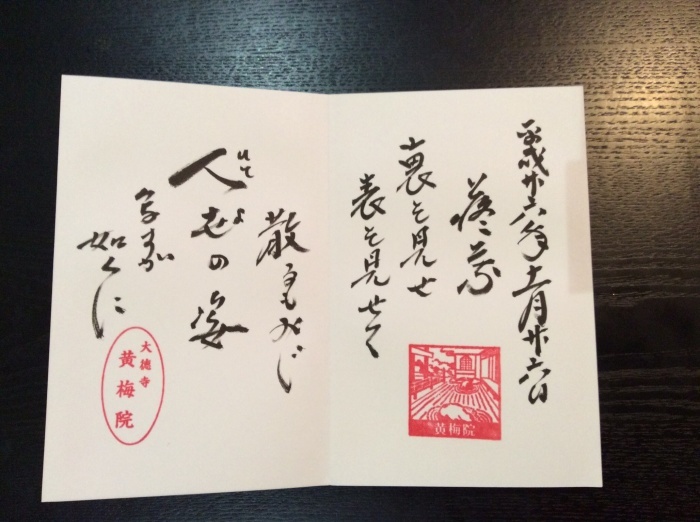 平成廿六年十一月廿六日
裏を見せ
表を見せて
黄梅院
散るもみじ
人世の姿
ひと
よ
写すが
如くに
大徳寺
黄梅院